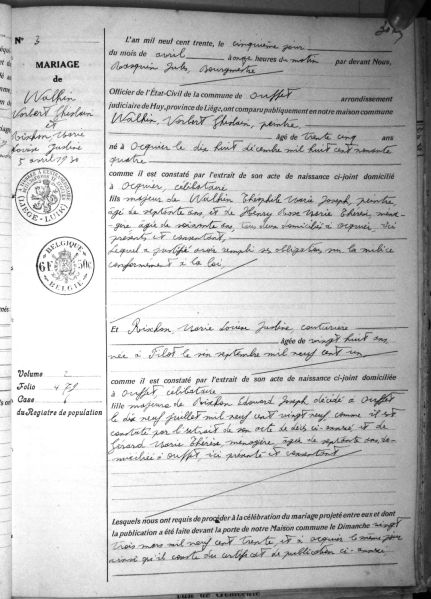 N° 3
MARIAGE
de
Walhin
Norbert Ghislain
et
Rixhon Marie
Louise Justine
5 avril 1930
BELGIQUE
6F 50c
BELGIË
Volume 2
Folio 479
Case
du Registre de population
L'an mil neuf cent trente, le cinquième jour
du mois de avril à onze heures du matin par devant Nous,
Jules, Bourgmestre
Officier de l'État-Civil de la commune de Ouffet arrondissement
judiciaire de Huy, province de Liége, ont comparu publiquement en notre maison commune
Walhin, Norbert Ghislain, peintre,
âgé de trente cinq ans
né à Ocquier le dix huit décembre mil huit cent nonante
quatre
comme il est constaté par l'extrait de son acte de naissance ci-joint domicilié
à Ocquier, célibataire
fils majeur de Walhin Théophile Marie Joseph, peintre,
âgé de septante ans, et de Henry Marie Thérèse, ména-
gère, âgée de soixante ans, tous deux domiciliés à Ocquier, ici
présents et consentant,
Lequel a justifié avoir rempli ses obligations sur la milice
conformément à la loi
Et Rixhon, Marie Louise Justine, couturière
âgée de vingt huit ans,
née à Filot le six septembre mil neuf cent un
comme il est constaté par l'extrait de son acte de naissance ci-joint domiciliée
à Ouffet, célibataire
fille majeure de Rixhon Edouard Joseph décédé à Ouffet
le dix juillet mil neuf cent vingt neuf comme il est
constaté par l'extrait de son acte de décès ci-annexé et de
Gérard Marie Thérèse, ménagère, âgée de septante ans, do-
miciliée à Ouffet ici présente et consentant
Lesquels nous ont requis de procéder à la célébration du mariage projeté entre eux et dont
la publication a été faite devant la porte de notre Maison commune le Dimanche vingt
trois mars mil neuf cent trente, et à Ocquier le même jour
ainsi qu'il conste du certificat de publication ci-annexé